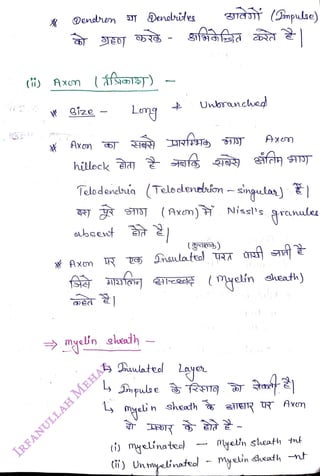 * Dendron या Dendrites आवेगों (Impulse)
को ग्रहण करके - अभिकेन्द्रित करते है।
(ii) Axon (तंत्रिकाक्ष) -
* Size - Long + Unbranched
* Axon का सबसे प्रारम्भिक भाग Axon
hillock होता है जबकि सबसे अंतिम भाग
Telodendria (Telodendrion - singular) है।
इस पूरे भाग (Axon) में Nissl's granules
absent होते है।
(कुचालक)
* Axon पर एक Insulated परत पायी जाती है
जिसे मायलिन आच्छद (Myelin sheath)
कहते है।
⇒ myelin sheath -
↳ Insulated Layer
↳ Impulse के रिसाव को रोकती है।
↳ Myelin sheath के आधार पर Axon
दो प्रकार के होते है -
(i) Myelinated - Myelin sheath +nt
(ii) Unmyelinated - Myelin sheath -nt
IRFANULLAH MEHA